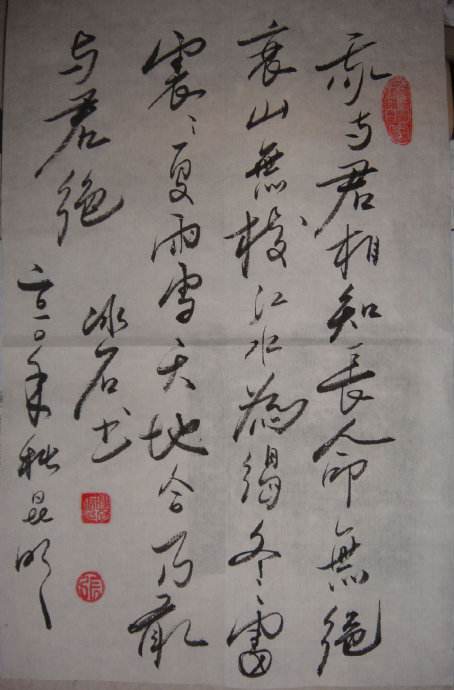 我与君相知長命無絕
衰山無棱江水為竭冬雷
震々夏雨雪天地合乃敢
与君絕
冰石书
二〇一〇年秋昆明
張